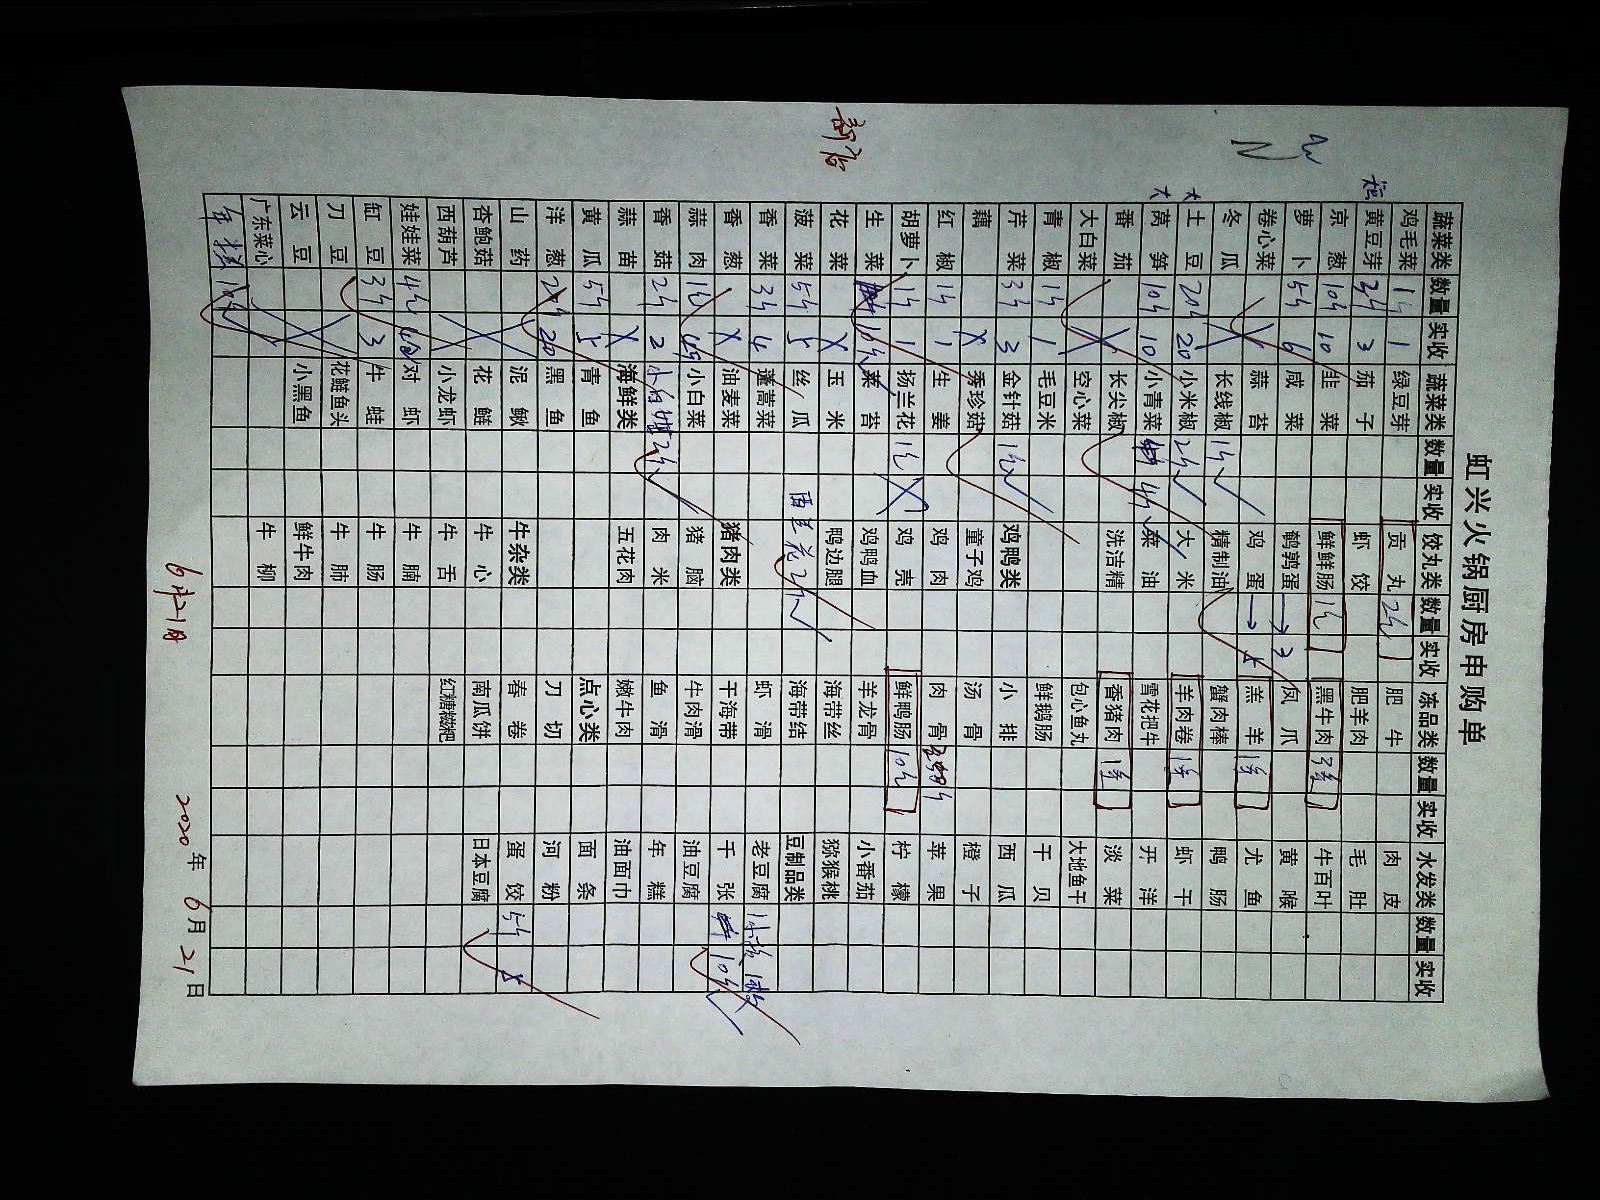 虹兴火锅厨房申购单
新店
蔬菜类 数量 实收 蔬菜类 数量 实收 饺丸类 数量 实收 冻品类 数量 实收 水发类 数量 实收
鸡毛菜 1斤 1 绿豆芽 贡丸 2包 肥牛 肉皮
黄豆芽 3斤 3 茄子 虾饺 肥羊肉 毛肚
京葱 10斤 10 韭菜 鲜鲜肠 1包 黑牛肉 3条 牛百叶
萝卜 5斤 6 咸菜 鹌鹑蛋 → 3 凤爪 黄喉
卷心菜 X 蒜苔 鸡蛋 → 羔羊 1条 尤鱼
冬瓜 X 长线椒 1斤 精制油 蟹肉棒 鸭肠
大 土豆 20斤 20 小米椒 2斤 大米 羊肉卷 1条 虾干
大 莴笋 10斤 10 小青菜 4斤 菜油 雪花把牛 开洋
番茄 X 长尖椒 洗洁精 香猪肉 1条 淡菜
大白菜 X 空心菜 包心鱼丸 大地鱼干
青椒 1斤 1 毛豆米 鲜鹅肠 干贝
芹菜 3斤 3 金针菇 1包 鸡鸭类 小排 西瓜
藕 X 秀珍菇 童子鸡 汤骨 橙子
红椒 1斤 1 生姜 鸡肉 肉骨 苹果
胡萝卜 1斤 1 扬兰花 1包 X 鸡壳 鲜鸭肠 10包 柠檬
生菜 10斤 菜苔 鸡鸭血 羊龙骨 小番茄
花菜 X 玉米 鸭边腿 海带丝 猕猴桃
菠菜 5斤 5 丝瓜 西兰花 2斤 海带结 豆制品类
香菜 3斤 4 蓬蒿菜 虾滑 老豆腐
香葱 X 油麦菜 猪肉类 干海带 千张 10斤
蒜肉 1包 小白菜 猪脑 牛肉滑 油豆腐
香菇 2斤 2 2斤 肉米 鱼滑 年糕
蒜苗 X 海鲜类 五花肉 嫩牛肉 油面巾
黄瓜 5斤 5 青鱼 点心类 面条
洋葱 20 黑鱼 刀切 河粉
山药 X 泥鳅 牛杂类 春卷 蛋饺 5斤
杏鲍菇 X 花鲢 牛心 南瓜饼 日本豆腐
西葫芦 X 小龙虾 牛舌 红糖糍粑
娃娃菜 4包 对虾 牛腩
缸豆 3斤 3 牛蛙 牛肠
刀豆 X 花鲢鱼头 牛肺
云豆 X 小黑鱼 鲜牛肉
广东菜心 X 牛柳
年糕
6月21日 2020年6月21日